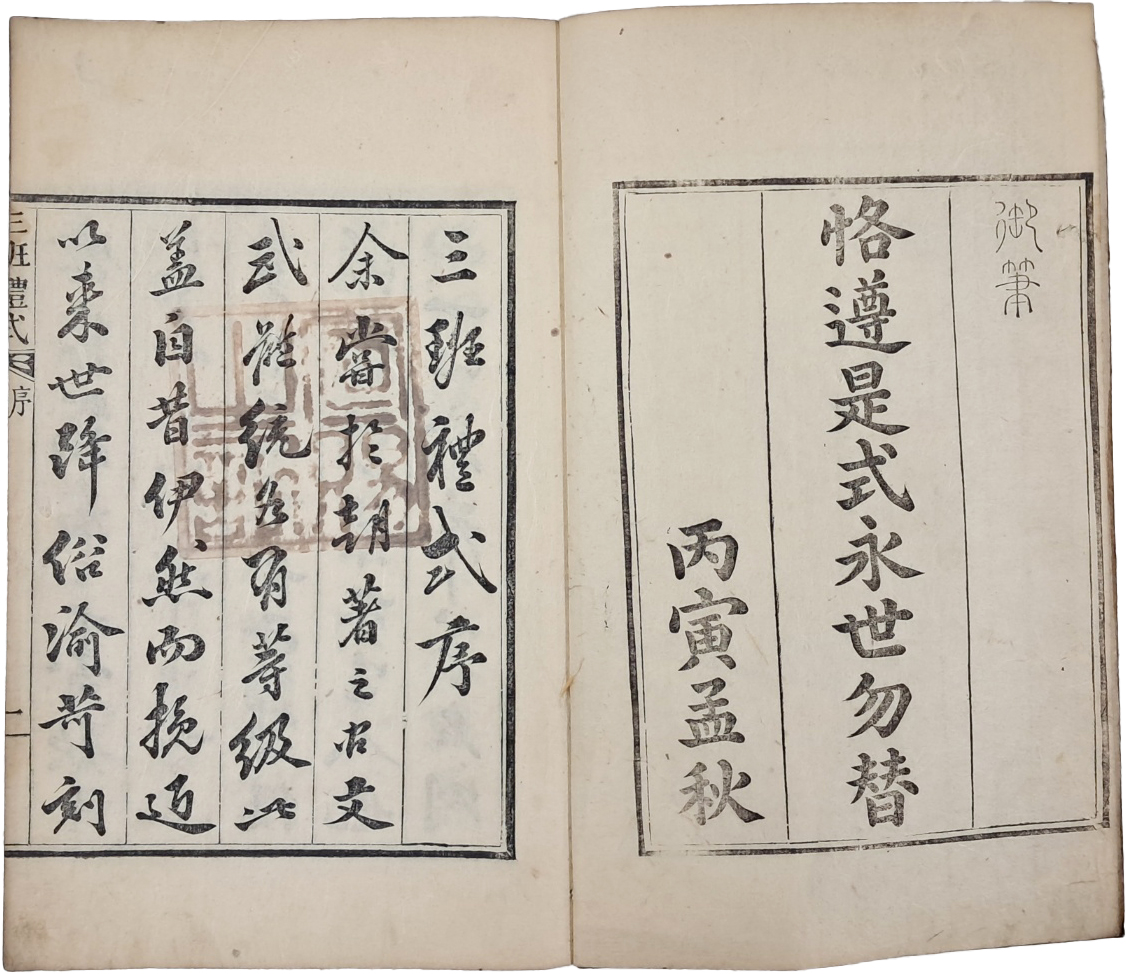 御筆
恪遵是式永世勿替
丙寅孟秋
三班禮式序
余嘗於朝著之文
式統各有等級此
蓋自昔伊然而挽近
以來世降俗渝苛刻
三班禮式 序 一